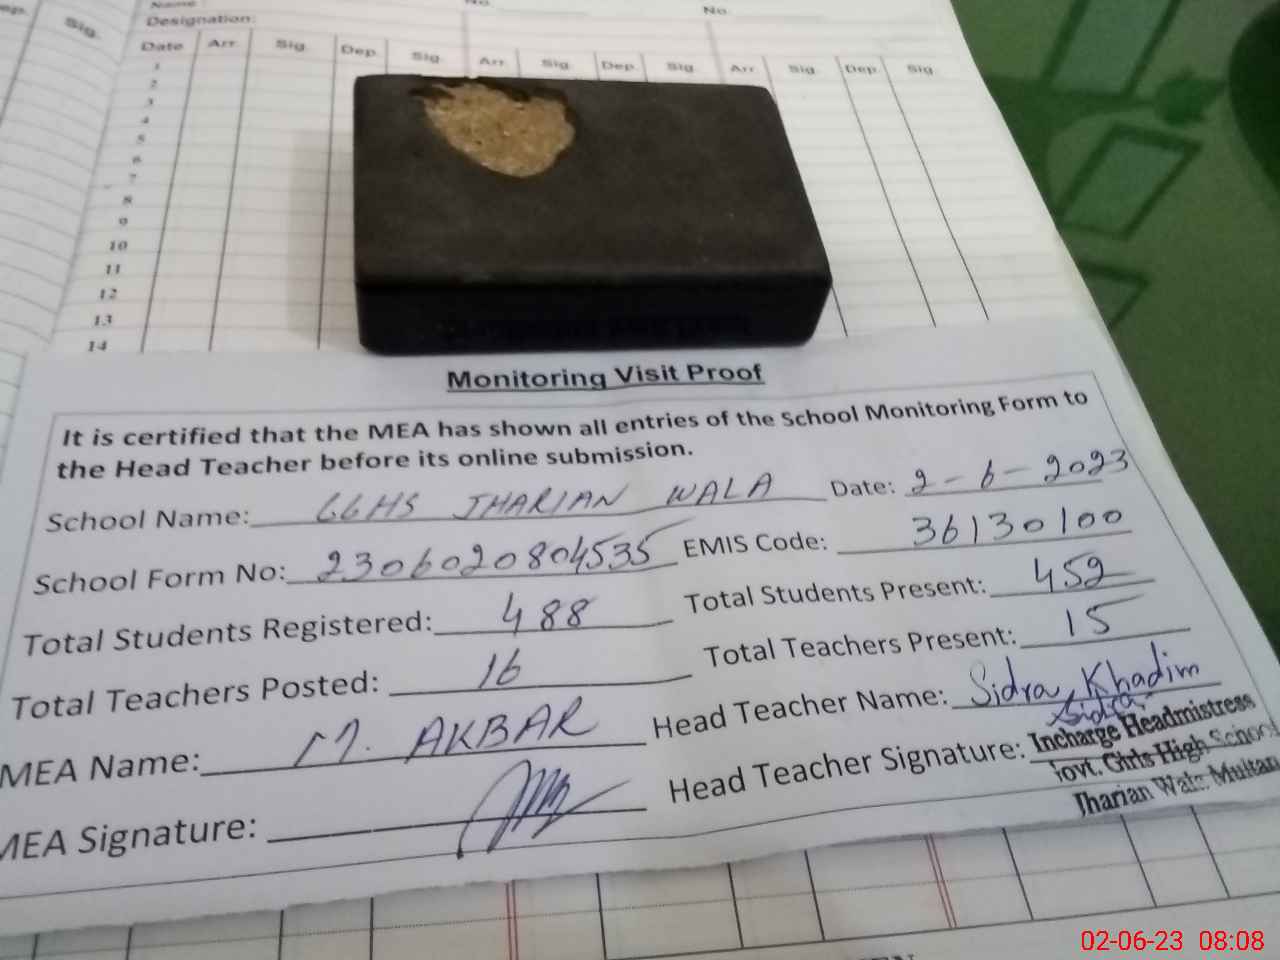 Sig.
Name :
No.
No.
Designation:
Date Arr. Sig. Dep. Sig. Arr. Sig. Dep. Sig. Arr. Sig. Dep. Sig.
1
2
3
4
5
6
7
8
9
10
11
12
13
14
Monitoring Visit Proof
It is certified that the MEA has shown all entries of the School Monitoring Form to
the Head Teacher before its online submission.
School Name: GGHS JHARIAN WALA Date: 2-6-2023
School Form No: 2306020804535 EMIS Code: 36130100
Total Students Registered: 488 Total Students Present: 452
Total Teachers Posted: 16 Total Teachers Present: 15
MEA Name: M. AKBAR Head Teacher Name: Sidra Khadim
MEA Signature: Head Teacher Signature: Sidra
Incharge Headmistress
Govt. Girls High School
Jharian Wala Multan
02-06-23 08:08